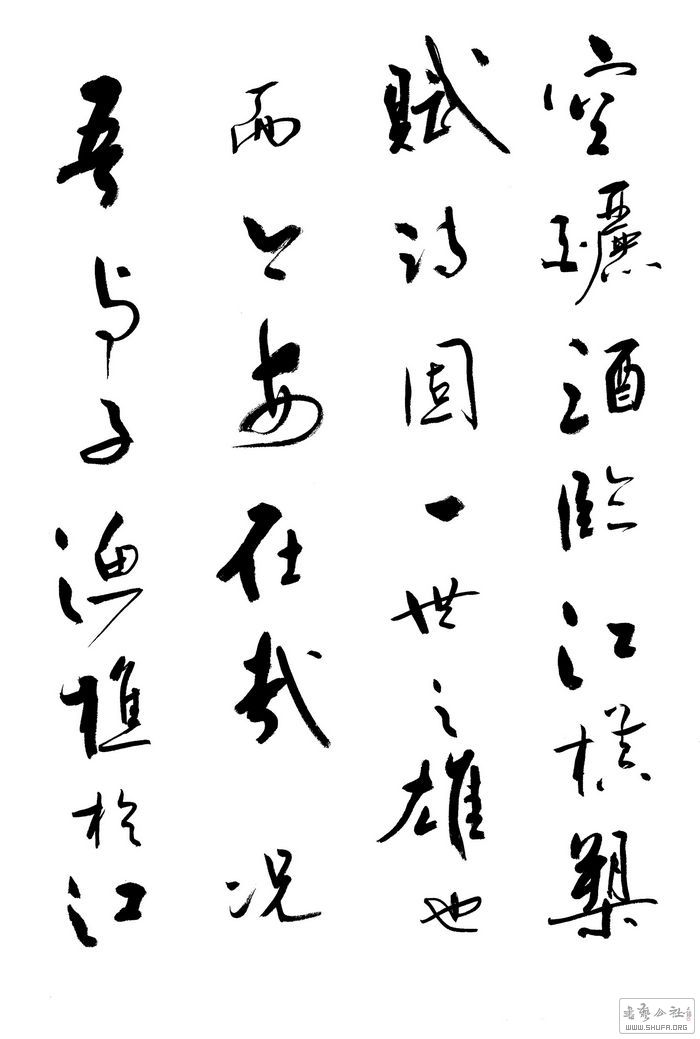 空釃酒臨江橫槊
賦詩固一世之雄也
而今安在哉況
吾与子漁樵於江
書藝公社
WWW.SHUFA.ORG